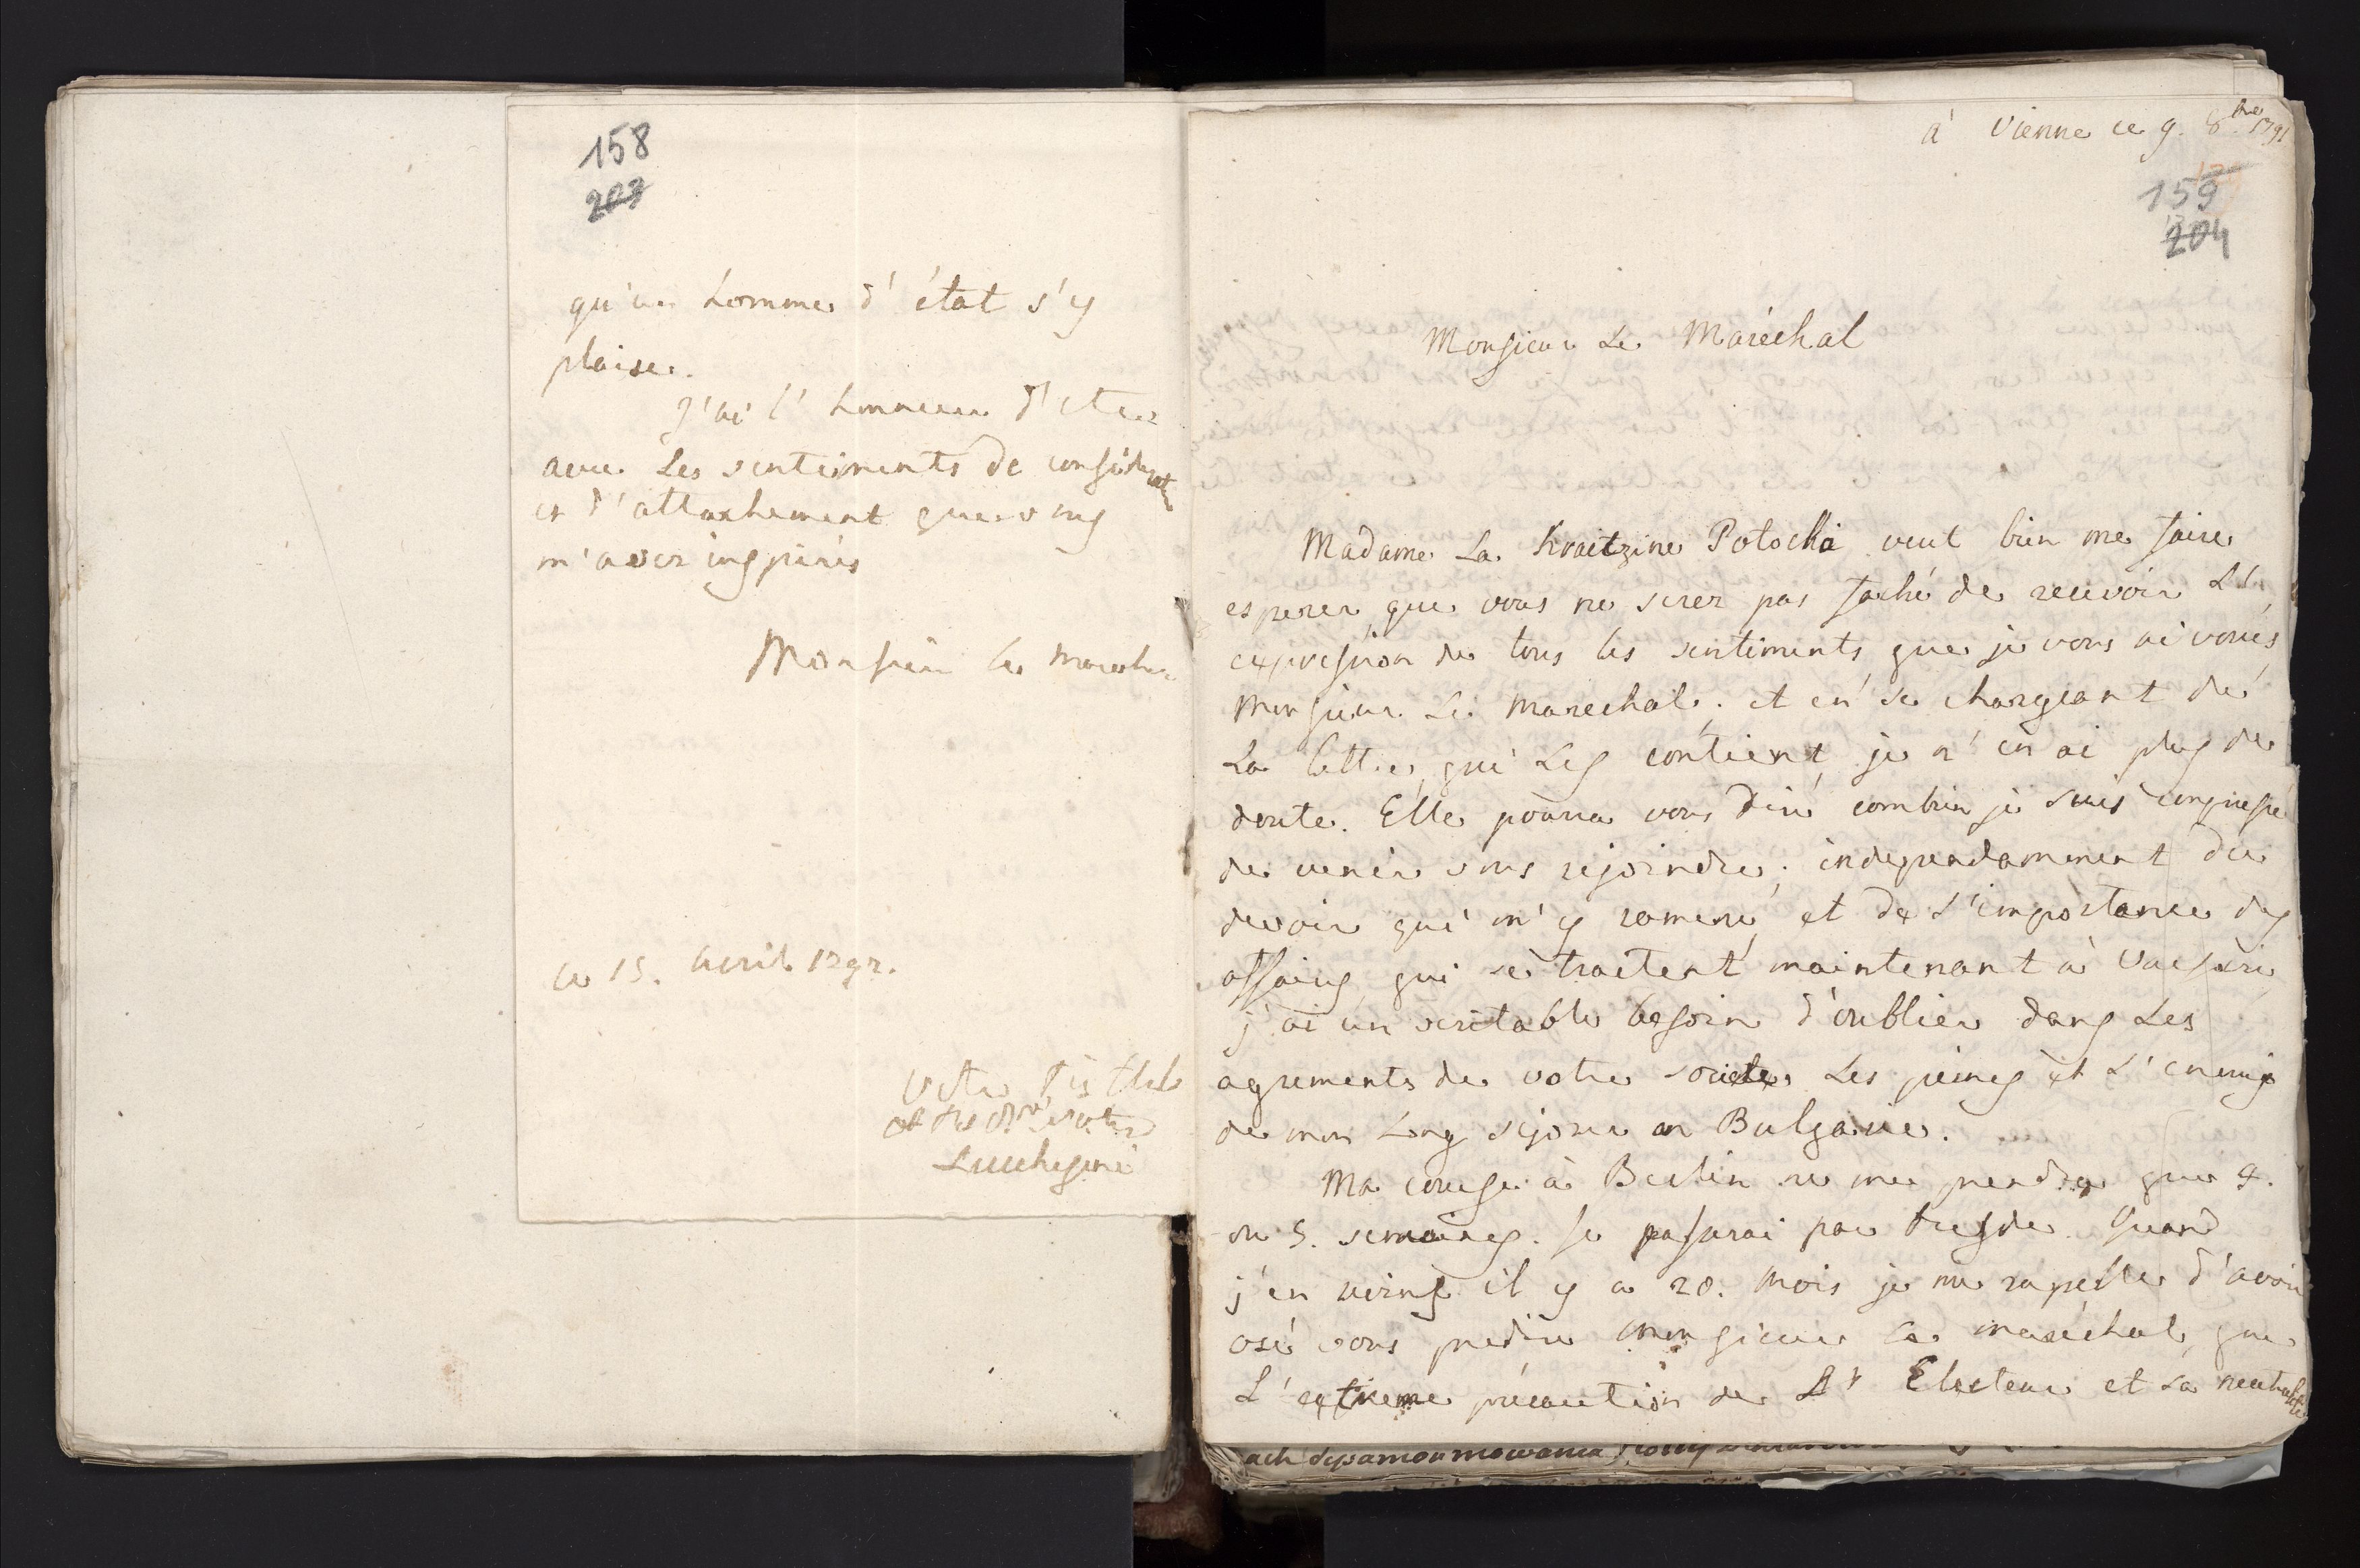 158
203
qu'un homme d'état s'y
plaise.
J'ai l'honneur d'etre
avec les sentiments de considerat
et d'attachement que vous
m'avez inspirés
Monsieur le marech
ce 15. avril 1792.
Votre très
et
Lucchesini
à Vienne ce 9. 8bre 1791
159
204
Monsieur Le Maréchal
Madame La Kraitzine Potocka veut bien me faire
esperer, que vous ne serez pas faché de recevoir L'
expression de tous les sentiments que je vous ai voués,
Monsieur Le Marechal; et en se chargeant de
La lettre, qui Les contient, je n'en ai plus de
doute. Elle pourra vous dire combien je suis empressé
de venir vous rejoindre; independamment du
devoir qui m'y ramene, et de L'importance des
affaires, qui se traitent maintenant à Varsovie,
j'ai un veritable besoin d'oublier dans Les
agrements de votre societé Les peines et L'ennuy
de mon Long sejour en Bulgarie.
Ma course à Berlin ne me prendra que 4.
ou 5. semaines. Je passerai par Dresde. Quand
j'en vins il y a 20. mois je me rapelle d'avoir
osé vous predire Monsieur Le maréchal, que
L'extreme précaution de Lr Electeur et sa neutralité